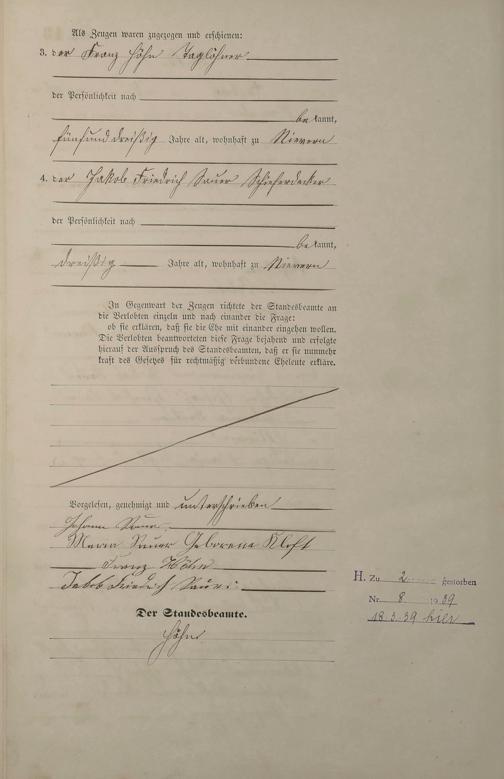 Als Zeugen waren zugezogen und erschienen:
3. der Franz Höhn Taglöhner
der Persönlichkeit nach
bekannt,
fünfunddreißig Jahre alt, wohnhaft zu Nievern
4. der Jakob Friedrich Sauer Schieferdecker
der Persönlichkeit nach
bekannt,
dreißig Jahre alt, wohnhaft zu Nievern
In Gegenwart der Zeugen richtete der Standesbeamte an
die Verlobten einzeln und nach einander die Frage:
ob sie erklären, daß sie die Ehe mit einander eingehen wollen.
Die Verlobten beantworteten diese Frage bejahend und erfolgte
hierauf der Ausspruch des Standesbeamten, daß er sie nunmehr
kraft des Gesetzes für rechtmäßig verbundene Eheleute erkläre.
Vorgelesen, genehmigt und unterschrieben
Johann Sauer
Maria Sauer Geborene Kloft
Franz Höhn
Jakob Friedrich
Der Standesbeamte.
Höhn
H. Zu 2 gestorben
Nr. 8 1939
18.3.39 hier